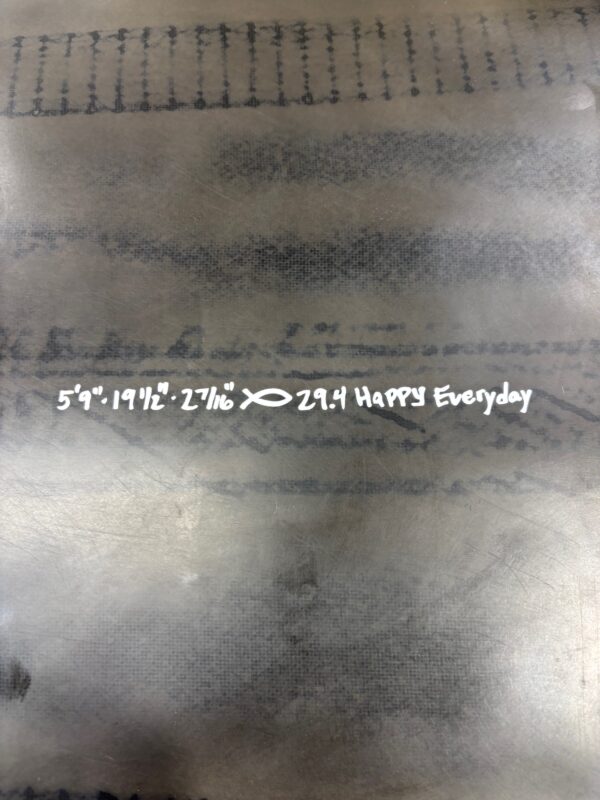 5'9" · 19 1/2" · 2 7/16" 29.4 Happy Everyday